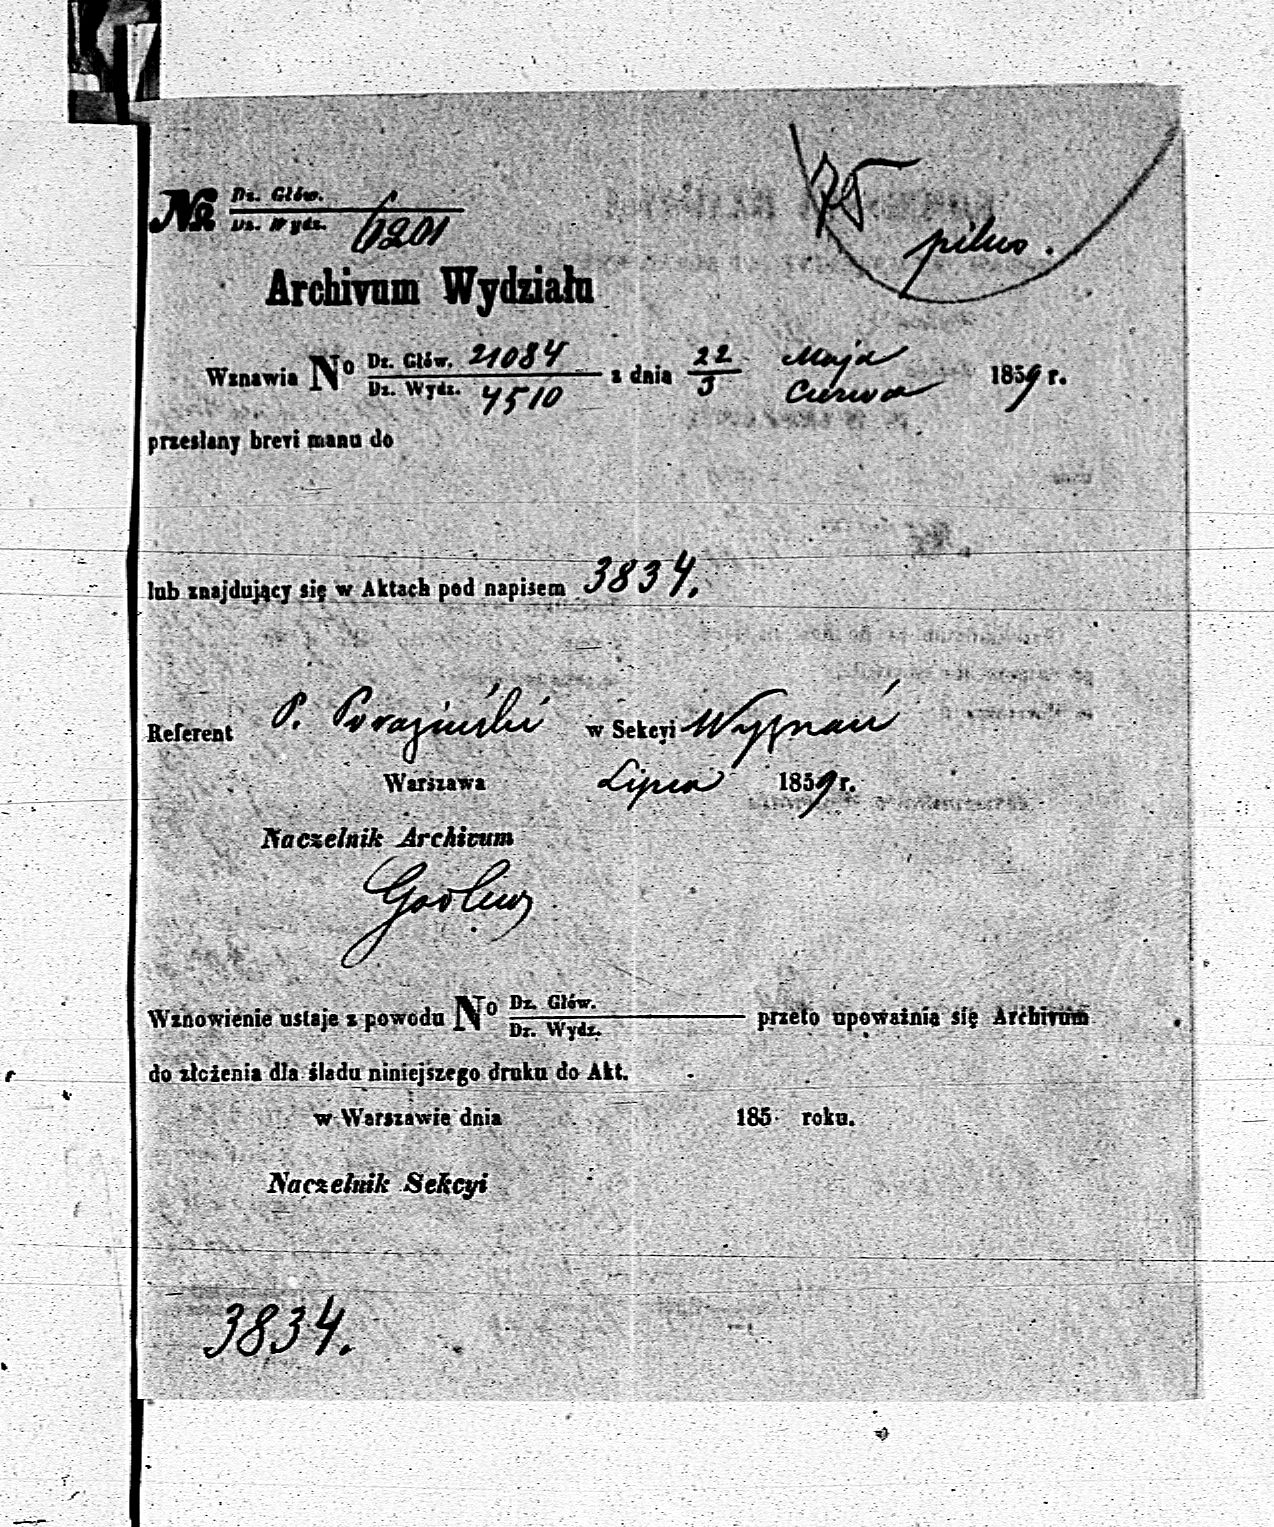 № Dz. Głów.
Dz. Wydz. 1201
75
pilno.
Archivum Wydziału
Wznawia No Dz. Głów. 21084 z dnia 22 Maja 1859 r.
Dz. Wydz. 4510 3 Czerwca
przesłany brevi manu do
lub znajdujący się w Aktach pod napisem 3834.
Referent P. Poraziński w Sekcyi Wyznań
Warszawa Lipca 1859 r.
Naczelnik Archivum
Wznowienie ustaje z powodu No Dz. Głów. przeto upoważnia się Archivum
Dz. Wydz.
do złożenia dla śladu niniejszego druku do Akt.
w Warszawie dnia 185 roku.
Naczelnik Sekcyi
3834.